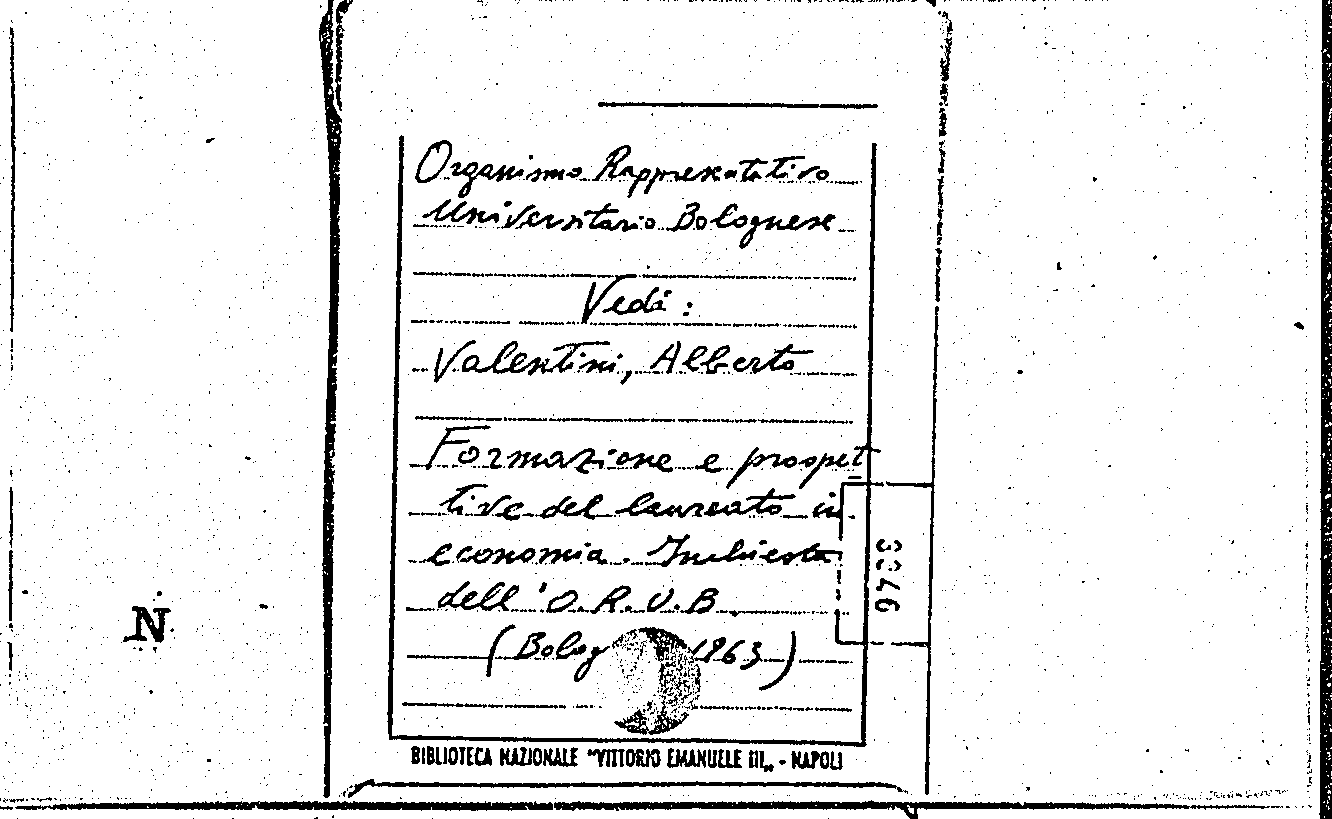 Organismo Rappresentativo
Universitario Bolognese
Vedi:
Valentini, Alberto
Formazione e prospet
tive del laureato in
economia. Inchiesta
dell'O.R.U.B.
(Bolog 1963)
N
BIBLIOTECA NAZIONALE "VITTORIO EMANUELE III„ - NAPOLI